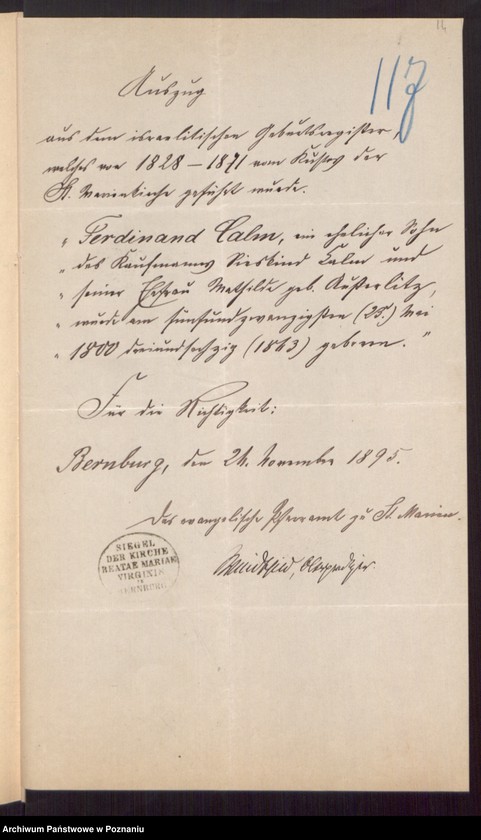 14
117
Auszug
aus dem israelitischen Geburtsregister,
welches von 1828 – 1871 vom Küster der
St. Marienkirche geführt wurde.
„ Ferdinand Calm, ein ehelicher Sohn
„ des Kaufmanns Siegkind Calm und
„ seiner Ehefrau Mathilde geb. Austerlitz,
„ wurde am fünfundzwanzigsten (25.) Mai
„ 1800 dreiundsechzig (1863) geboren. "
Für die Richtigkeit:
Bernburg, den 21. November 1895.
Das evangelische Pfarramt zu St. Marien.
SIEGEL
DER KIRCHE
BEATAE MARIAE
VIRGINIS
IN
BERNBURG
Oberprediger
Archiwum Państwowe w Poznaniu